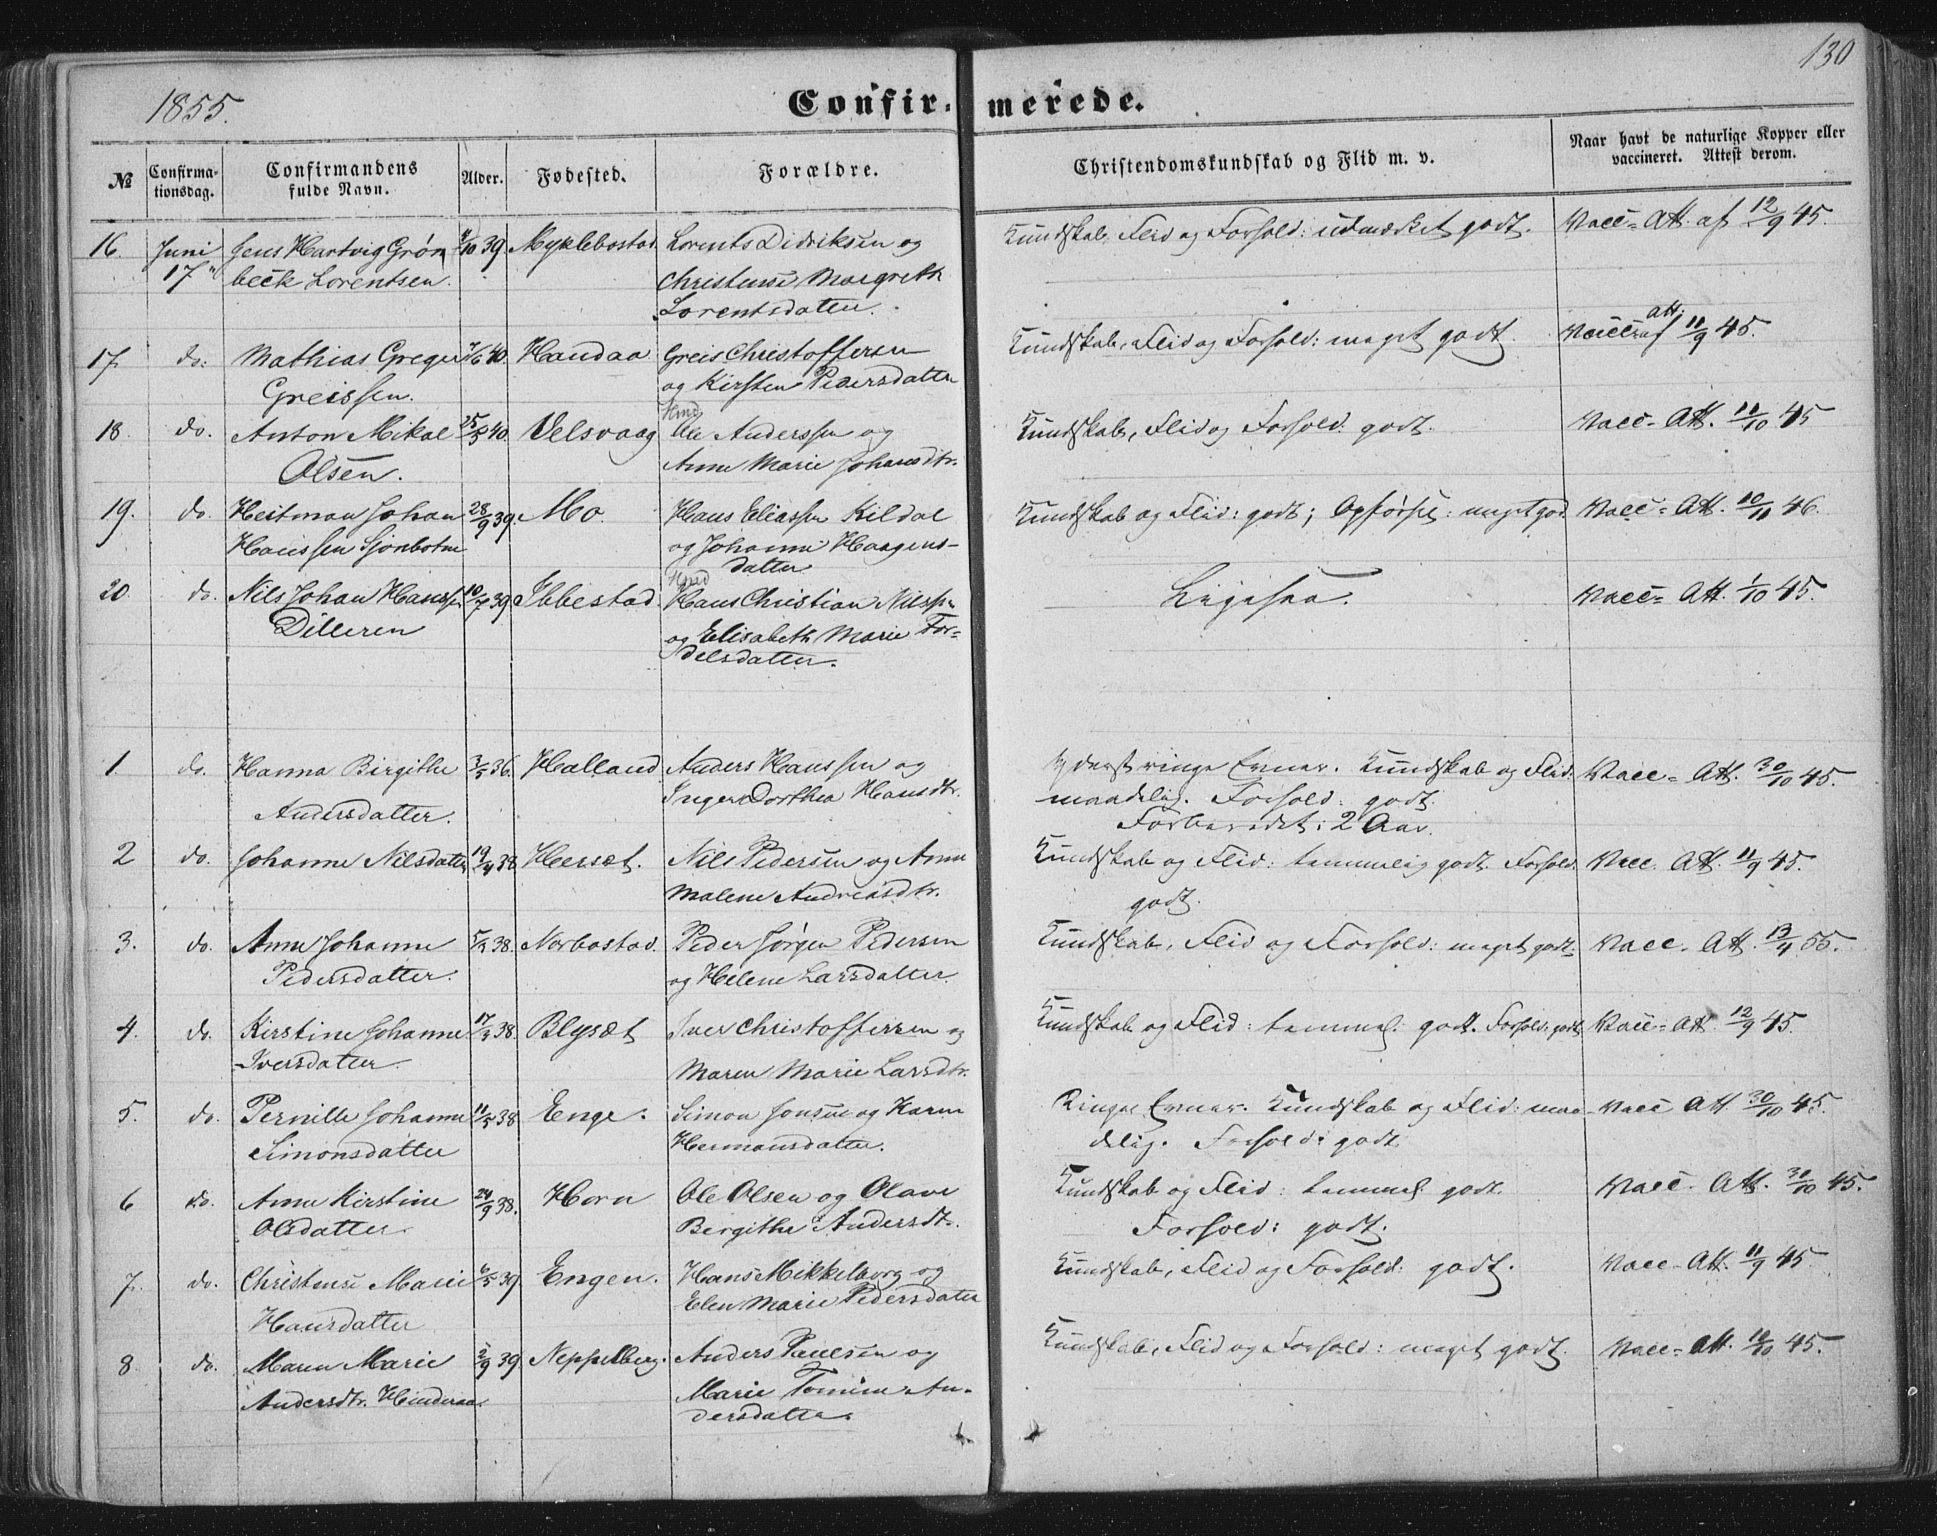 130
1855.
Confirmerede.
№
Confirmationsdag.
Confirmandens fulde Navn.
Alder.
Fødested.
Forældre.
Christendomskundskab og Flid m. v.
Naar havt de naturlige Kopper eller vaccineret. Attest derom.
16. Juni Jens Hartvig Grøn 39. Myklebostad Lorents Didriksen og Kundskab, Flid og Forhold: udmærket godt. Vacc. Att. af 12/9 45.
17 beck Lorentsen. Christense Margreth
Lorentsdatter.
17. do: Mathias Greger 40. Handaa Greis Christoffersen Kundskab, Flid og Forhold: meget godt. Vacc. att. af 11/9 45.
Greissen. og Kirsten Pedersdatter
18. do. Anton Mikal 40. Velsvaag Ole Anderssen og Kundskab, Flid og Forhold. godt. Vacc. Att. 11/10 45
Olsen. Anne Marie Johansdtr.
19. do. Heitman Johan 28/9 39. Mo. Hans Eliassen Kildal Kundskab og Flid: godt; Opførsel: meget god Vacc. Att. 10/11 46.
Hanssen Sjonbotn og Johanne Haagens-
datter
20. do. Nils Johan Hanssen 10/7 39. Ibbestad Hans Christian Nilssen Ligesaa. Vacc. Att. 1/10 45.
Dilleren og Elisabeth Marie Tor-
delsdatter.
1. do. Hanna Birgithe 3/5 36. Halland Anders Hanssen og Yderst ringe Evner. Kundskab og Flid. Vacc. Att. 30/10 45.
Andersdatter. Inger Dorthea Hansdtr. maadelig. Forhold: godt.
Forberedet i 2 Aar.
2 do. Johanne Nilsdatter 19/4 38. Hersæt. Nils Pedersen og Anne Kundskab og Flid: temmelig godt. Forhold. Vacc. Att. 11/9 45.
Malene Andreasdtr. godt.
3. do. Anne Johanne 38. Norbostad. Peder Jørgen Pedersen Kundskab, Flid og Forhold: meget godt. Vacc. Att. 13/4 55.
Pedersdatter. og Helene Larsdatter.
4. do. Kirstine Johanne 38. Blysæt Iver Christoffersen og Kundskab og Flid: temmel. godt. Forhold: godt Vacc. Att. 12/9 45.
Iversdatter. Maren Marie Larsdtr.
5. do. Pernille Johanne 11/5 38 Enge. Simon Jonsen og Karen Ringe Evner. Kundskab og Flid: maa- Vacc Att. 30/10 45.
Simonsdatter Hermansdatter. delig. Forhold: godt
6 do. Anne Kirstine 24/9 38. Horn Ole Olsen og Olave Kundskab og Flid: temmel. godt. Vacc. Att. 30/10 45.
Olsdatter. Bergithe Andersdt. Forhold: godt.
7. do. Christense Marie 6/5 39 Engen. Hans Mikkelborg og Kundskab, Flid og Forhold: godt. Vacc. Att. 11/9 45
Hansdatter Elen Marie Pedersdatter
8. do. Maren Marie 2/9 39 Neppelberg. Anders Paulsen og Kundskab, Flid og Forhold: meget godt. Vacc. Att. 45.
Andersdtr. Hinderaa Marie Tomine An-
dersdatter.